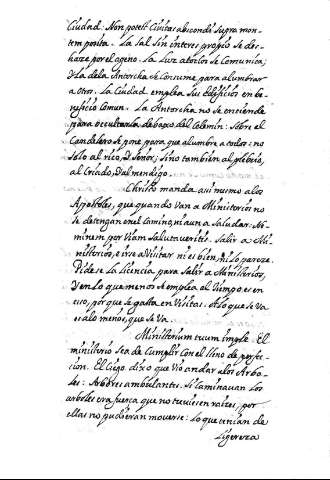 Ciudad: Non potest Civitas abscondi supra mon-
tem posita. La sal sin interes propio se des-
haze por el ageno. La Luz a todos se Comunica;
Y la de la Antorcha se Consume, para alumbrar
a otros. La Ciudad emplea sus edificios en be-
neficio Comun. La Antorcha no se enciende
para ocultarla debaxo del Celemin: sobre el
Candelero se pone para que alumbre a todos: no
solo al rico, Señor; sino tambien al plebeio,
al Criado, al mendigo.
Christo manda asimismo a los
Apostoles, que quando van a Ministerios no
se detengan en el camino, ni aun a saludar. Ne-
minem per viam salutaveritis. Salir a Mi-
nisterios, e irse a Visitar ni es bien, ni lo parece.
Pidese la Licencia para salir a Ministerios,
Y en lo que menos se emplea el tiempo es en
esto, porque se gasta en Visitas. A lo que se va
es a lo menos, que se va.
Ministerium tuum imple. El
ministerio sea de Cumplir Con el lleno de perfec-
cion. El Ciego dixo que Vio andar a los Arbo-
les: Arboles ambulantes. Si Caminavan los
arboles era fuerça que no tuviesen raizes, por
ellas no pudieran moverse: lo que tenian de
ligereza